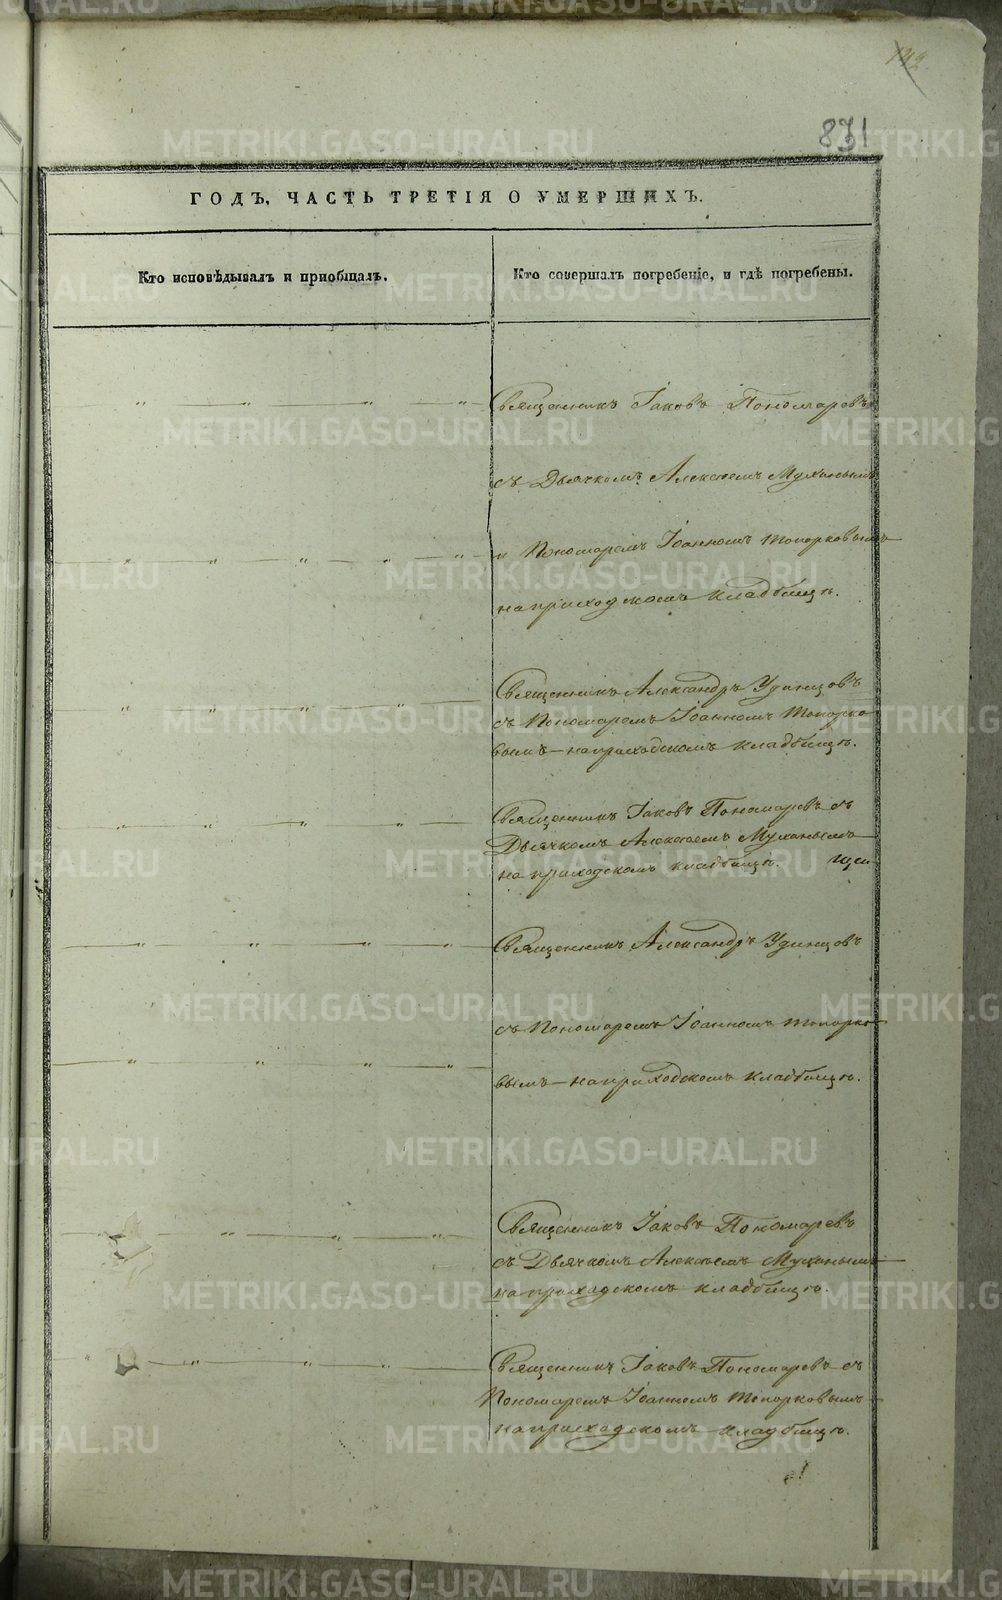 142
831
ГОДЪ, ЧАСТЬ ТРЕТІЯ О УМЕРШИХЪ.
Кто исповѣдывалъ и приобщалъ.
Кто совершалъ погребеніе, и гдѣ погребены.
Священникъ Іаковъ Пономаревъ
съ Дьячкомъ Алексѣемъ Мухинымъ
и Пономаремъ Іоанномъ Топорковымъ
на приходскомъ кладбищѣ.
Священникъ Александръ Удинцовъ
съ Пономаремъ Іоанномъ Топорко
вымъ – на приходскомъ кладбищѣ.
Священникъ Іаковъ Пономаревъ съ
Дьячкомъ Алексѣемъ Мухинымъ
на приходскомъ кладбищѣ.
Священникъ Александръ Удинцовъ
съ Пономаремъ Іоанномъ Топорко
вымъ – на приходскомъ кладбищѣ.
Священникъ Іаковъ Пономаревъ
съ Дьячкомъ Алексѣемъ Мухинымъ
на приходскомъ кладбищѣ.
Священникъ Іаковъ Пономаревъ съ
Пономаремъ Іоанномъ Топорковымъ
на приходскомъ кладбищѣ.
METRIKI.GASO-URAL.RU